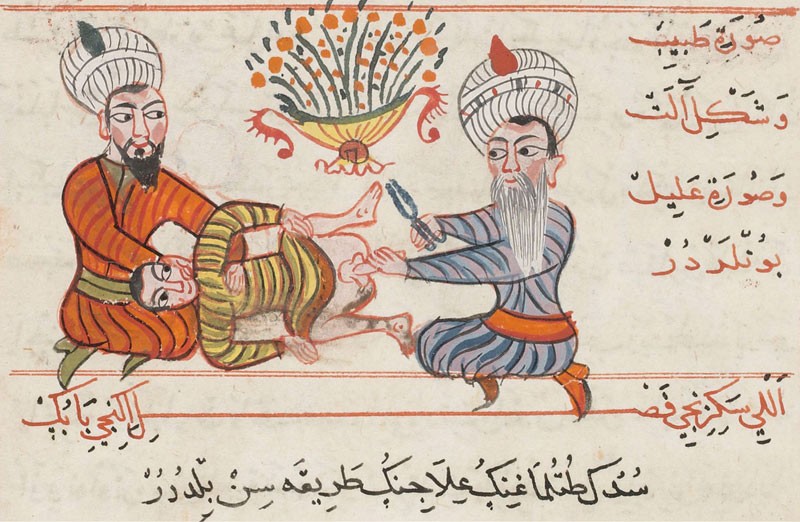 صُورَةِ طَبِيبْ
وَشَكْلِ آلَتْ
وَصُورَةِ عَلِيلْ
بُونْلَرْدُرْ
اَللِي سَكِزِنْجِي فَصِل اِكِنْجِي بَابُكْ
سِدُكْ طُتُلْمَاغِنِكْ عِلَاجِنِكْ طَرِيقَه سِنْ بِلْدُرُرْ